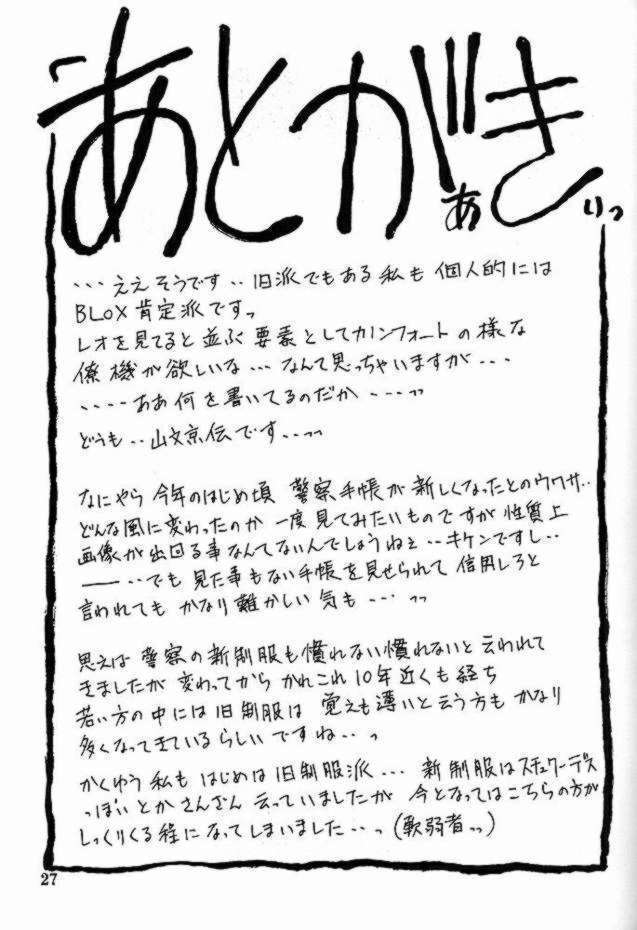 あとがき
ああ りっ
・・・ええそうです・・旧派でもある私も個人的には
BLOX肯定派ですっ
レオを見てると並ぶ要素としてカノンフォートの様な
僚機が欲しいな・・・なんて思っちゃいますが・・・
・・・・ああ何を書いてるのだか・・・・っっ
どうも・・山文京伝です・・っっ
なにやら今年のはじめ頃 警察手帳が新しくなったとのウワサ・・
どんな風に変わったのか 一度見てみたいものですが性質上
画像が出回る事なんてないんでしょうねぇ・・キケンですし・・
――・・でも見た事もない手帳を見せられて信用しろと
言われても かなり難かしい気も・・・・っっ
思えば警察の新制服も慣れない慣れないと云われて
きましたが 変わってから かれこれ10年近くも経ち
若い方の中には旧制服は 覚えも薄いと云う方も かなり
多くなってきているらしいですね・・っ
かくゆう私も はじめは旧制服派・・・ 新制服はスチュワーデス
っぽいとかさんざん云っていましたが 今となってはこちらの方が
しっくりくる程になってしまいました・・っ(軟弱者っっ)
27